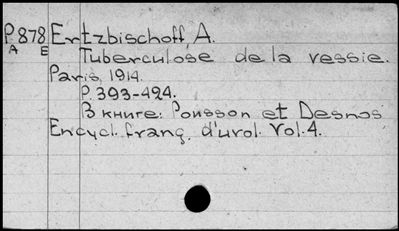 P878 Ertzbischoff, A.
A E Tuberculose de la vessie.
Paris, 1914.
P. 393-424.
В книге: Pousson et Desnos
Encycl. franç. d'urol. Vol. 4.